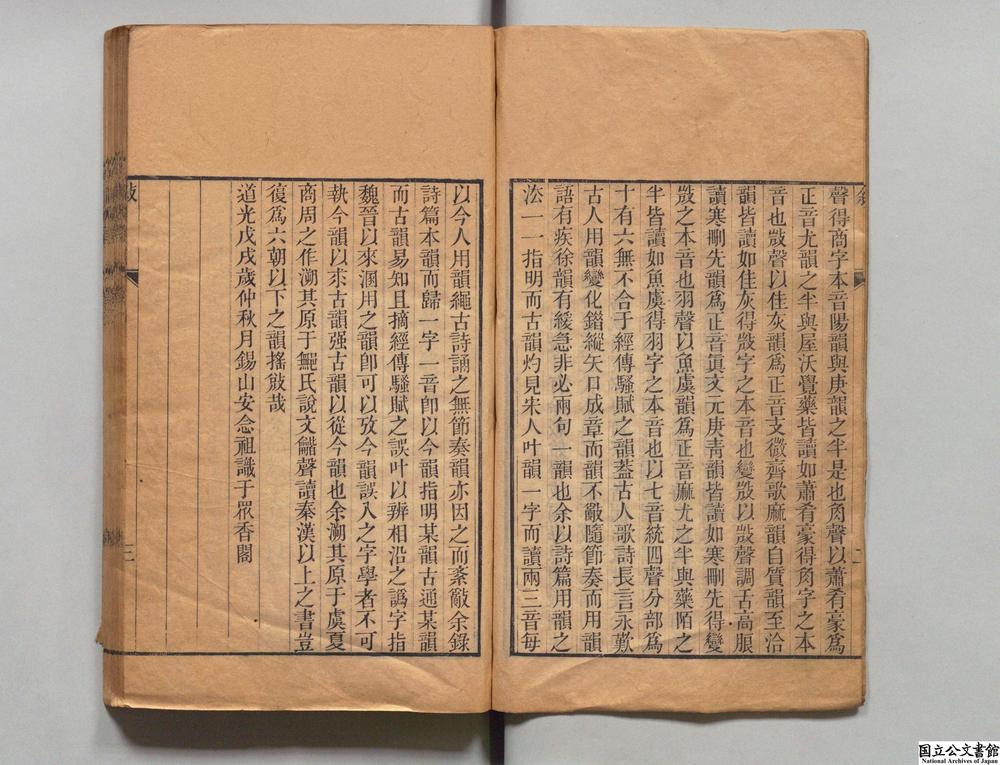 聲得商字本音陽韻與庚韻之半是也角聲以蕭肴豪爲
正音尤韻之半與屋沃覺藥皆讀如蕭肴豪得角字之本
音也敳聲以佳灰韻爲正音支微齊歌麻韻自質韻至洽
韻皆讀如佳灰得敳字之本音也變敳以敳聲調舌高脹
讀寒刪先韻爲正音眞文元庚靑韻皆讀如寒刪先得變
敳之本音也羽聲以魚虞韻爲正音麻尤之半與藥陌之
半皆讀如魚虞得羽字之本音也以七音統四聲分部爲
十有六無不合于經傳騷賦之韻葢古人歌詩長言永歎
古人用韻變化錯縱矢口成章而韻不敵隨節奏而用韻
語有疾徐韻有緩急非必兩句一韻也余以詩篇用韻之
法一一指明而古韻灼見朱人叶韻一字而讀兩三音每
以今人用韻繩古詩誦之無節奏韻亦因之而紊敵余錄
詩篇本韻而歸一字一音卽以今韻指明某韻古通某韻
而古韻易知且摘經傳騷賦之誤叶以辨相沿之譌字指
魏晉以來溷用之韻卽可以攷今韻誤入之字學者不可
執今韻以求古韻强古韻以從今韻也余溯其原于虞夏
商周之作溯其原于 氏說文 聲讀秦漢以上之書豈
復爲六朝以下之韻搖敓哉
道光戊戌歲仲秋月錫山安念祖識于眾香閣
二
三
国立公文書館
National Archives of Japan